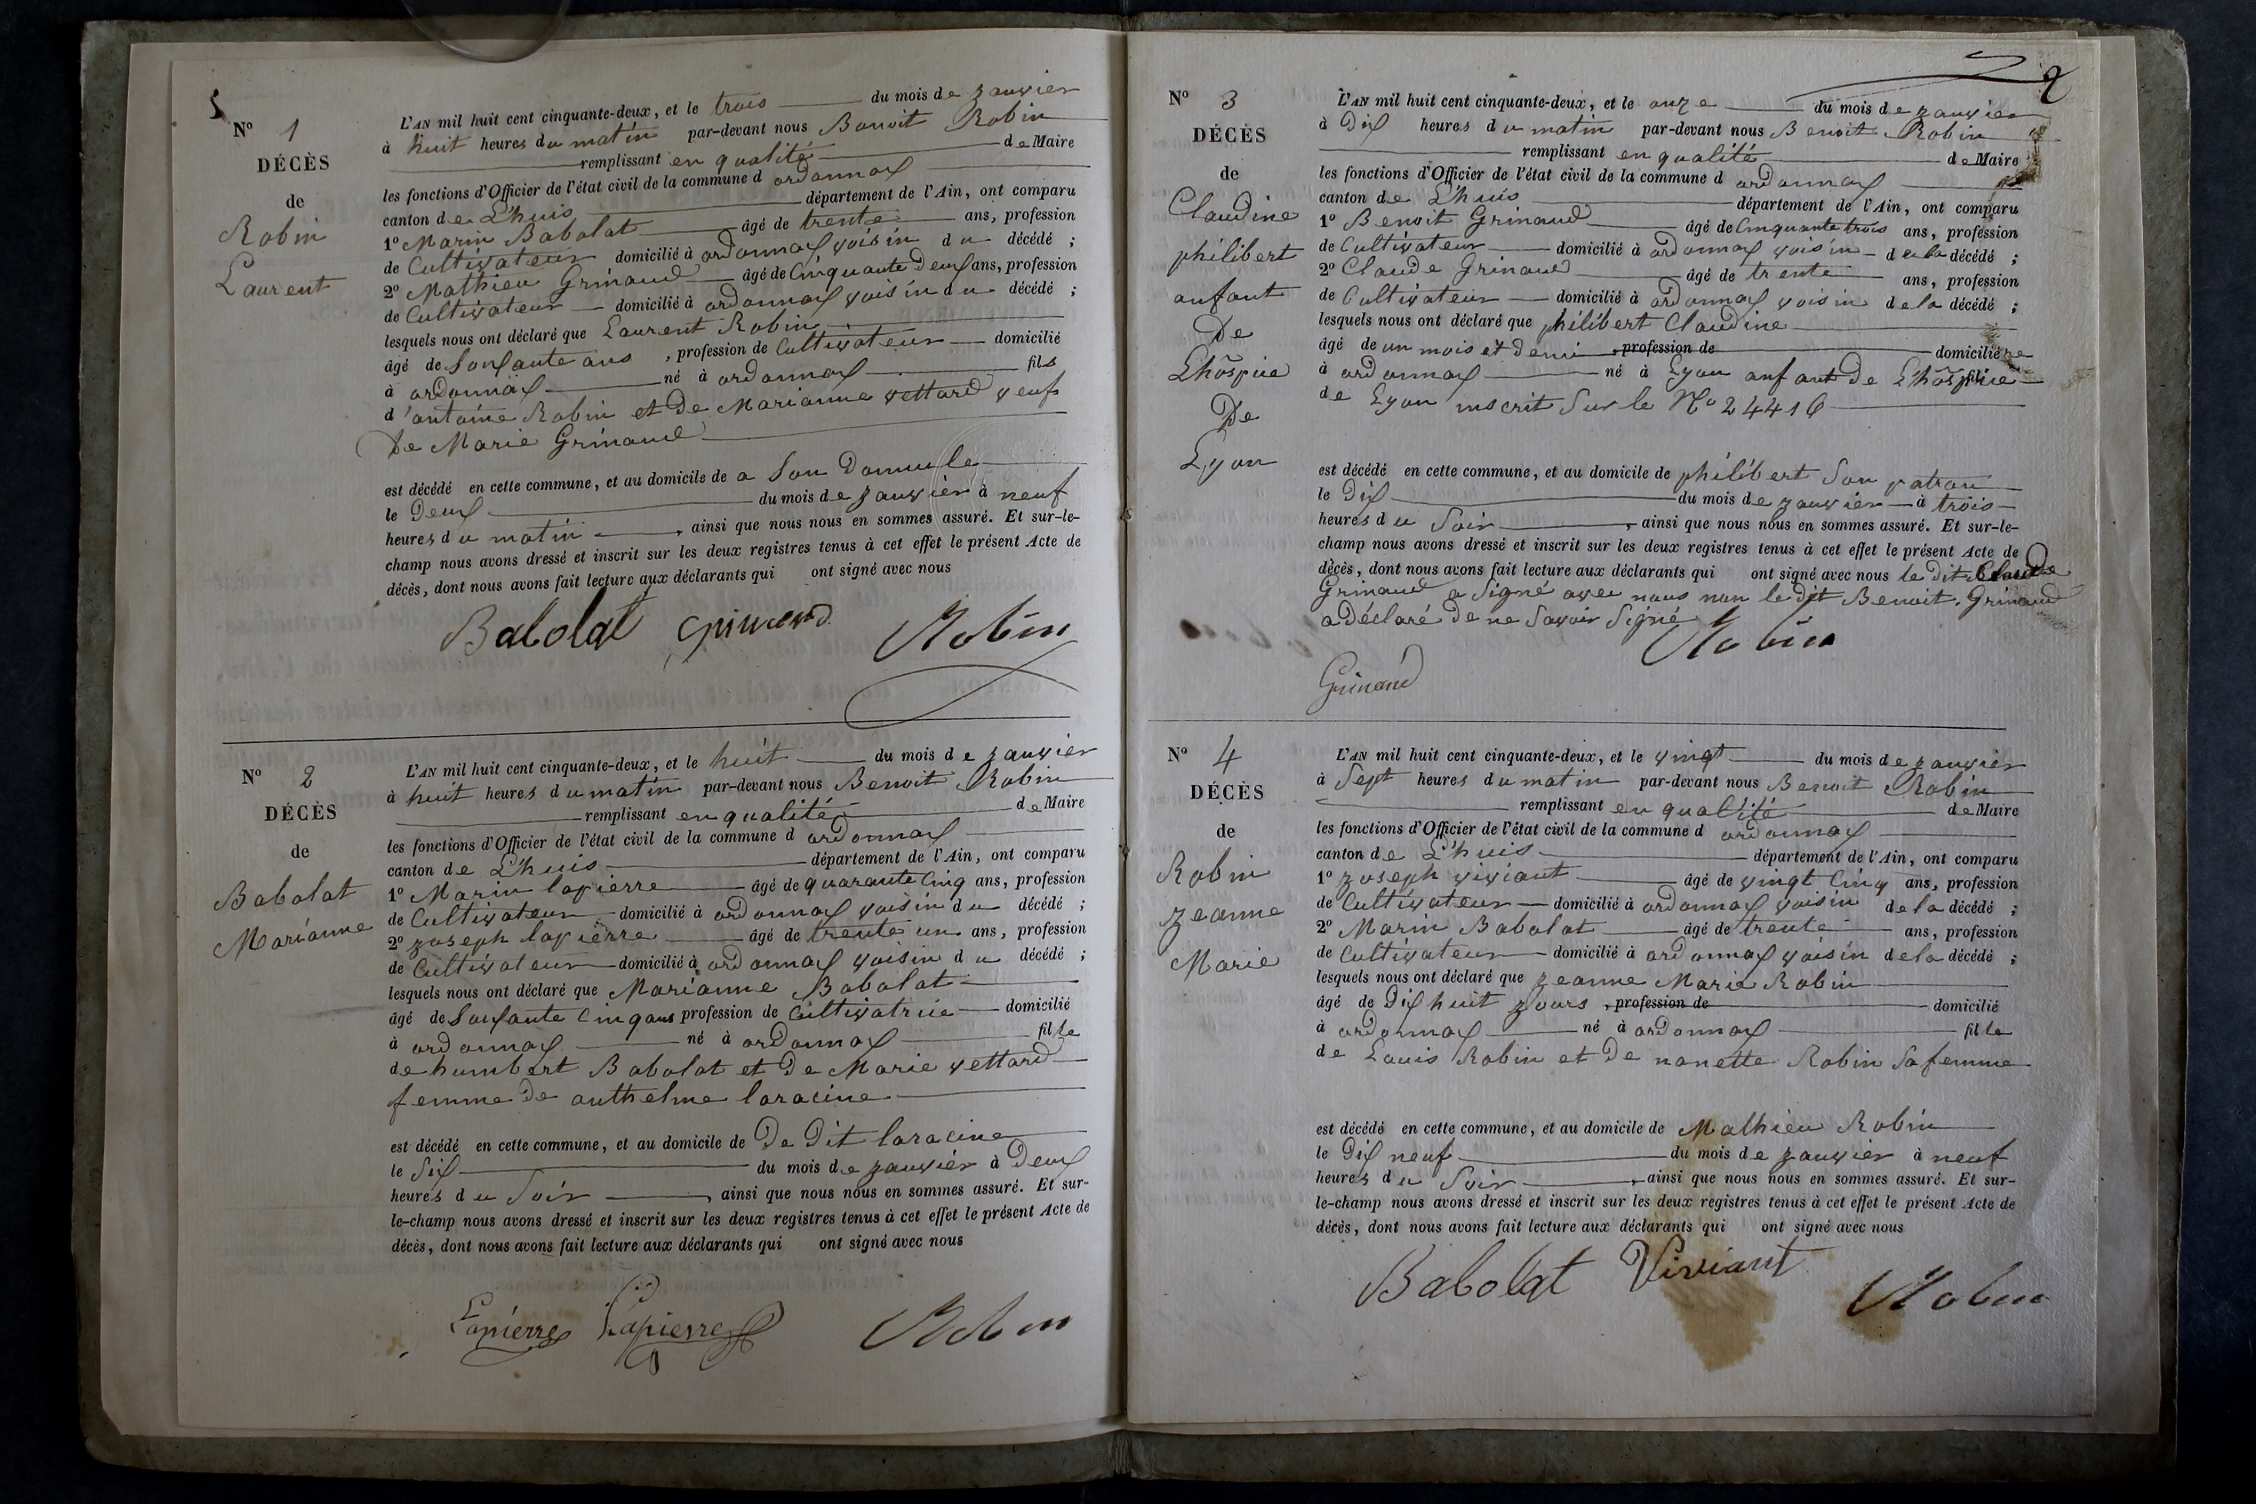 N° 1
DÉCÈS
de
Robin
Laurent
L'AN mil huit cent cinquante-deux, et le trois du mois de zanvier
à huit heures du matin par-devant nous Benoit Robin
remplissant en qualité de Maire
les fonctions d'Officier de l'état civil de la commune d ordonnax
canton de L'huis département de l'Ain, ont comparu
1° Marin Babolat âgé de trente ans, profession
de Cultivateur domicilié à ordonnax voisin du décédé ;
2° Mathieu Grinand âgé de Cinquante Deux ans, profession
de Cultivateur domicilié à ordonnax voisin du décédé ;
lesquels nous ont déclaré que Laurent Robin
âgé de Soixante ans , profession de Cultivateur domicilié
à ordonnax né à ordonnax fils
d'antoine Robin et de Marianne vettard veuf
De Marie Grinand
est décédé en cette commune, et au domicile de a Son Domicile
le Deux du mois de zanvier à neuf
heures du matin , ainsi que nous nous en sommes assuré. Et sur-le-
champ nous avons dressé et inscrit sur les deux registres tenus à cet effet le présent Acte de
décès, dont nous avons fait lecture aux déclarants qui ont signé avec nous
Babolat Grinand Robin
N° 2
DÉCÈS
de
Babolat
Marianne
L'AN mil huit cent cinquante-deux, et le huit du mois de zanvier
à huit heures du matin par-devant nous Benoit Robin
remplissant en qualité de Maire
les fonctions d'Officier de l'état civil de la commune d ordonnax
canton de L'huis département de l'Ain, ont comparu
1° Marin lapierre âgé de quarante Cinq ans, profession
de Cultivateur domicilié à ordonnax voisin du décédé ;
2° zoseph lapierre âgé de trente un ans, profession
de Cultivateur domicilié à ordonnax voisin du décédé ;
lesquels nous ont déclaré que Marianne Babolat
âgé de Soixante Cinq ans profession de Cultivatrice domicilié
à ordonnax né à ordonnax fille
de humbert Babolat et De Marie vettard
femme de anthelme laracine
est décédé en cette commune, et au domicile de Du Dit laracine
le Six du mois de zanvier à Deux
heures du Soir , ainsi que nous nous en sommes assuré. Et sur-
le-champ nous avons dressé et inscrit sur les deux registres tenus à cet effet le présent Acte de
décès, dont nous avons fait lecture aux déclarants qui ont signé avec nous
Lapierre Lapierre Robin
2
N° 3
DÉCÈS
de
Claudine
philibert
anfant
De
Lhôspice
De
Lyon
L'AN mil huit cent cinquante-deux, et le onze du mois de zanvier
à Dix heures du matin par-devant nous Benoit Robin
remplissant en qualité de Maire
les fonctions d'Officier de l'état civil de la commune d ordonnax
canton de L'huis département de l'Ain, ont comparu
1° Benoit Grinand âgé de Cinquante trois ans, profession
de Cultivateur domicilié à ordonnax voisin de la décédé ;
2° Claude Grinand âgé de trente ans, profession
de Cultivateur domicilié à ordonnax voisin de la décédé ;
lesquels nous ont déclaré que philibert Claudine
âgé de un mois et demi , profession de domicilié
à ordonnax né à Lyon anfant de L'hôspice
de Lyon inscrit Sur le No 24416
est décédé en cette commune, et au domicile de philibert Son patron
le Dix du mois de zanvier à trois
heures du Soir , ainsi que nous nous en sommes assuré. Et sur-le-
champ nous avons dressé et inscrit sur les deux registres tenus à cet effet le présent Acte de
décès, dont nous avons fait lecture aux déclarants qui ont signé avec nous le Dit Claude
Grinand a Signé avec nous non le dit Benoit Grinand
a Déclaré De ne Savoir Signé
Robin
Grinand
N° 4
DÉCÈS
de
Robin
zeanne
Marie
L'AN mil huit cent cinquante-deux, et le vingt du mois de zanvier
à Sept heures du matin par-devant nous Benoit Robin
remplissant en qualité de Maire
les fonctions d'Officier de l'état civil de la commune d ordonnax
canton de L'huis département de l'Ain, ont comparu
1° zoseph viviant âgé de vingt Cinq ans, profession
de Cultivateur domicilié à ordonnax voisin de la décédé ;
2° Marin Babolat âgé de trente ans, profession
de Cultivateur domicilié à ordonnax voisin de la décédé ;
lesquels nous ont déclaré que zeanne Marie Robin
âgé de Dix huit zours , profession de domicilié
à ordonnax né à ordonnax fille
de Louis Robin et De nanette Robin Sa femme
est décédé en cette commune, et au domicile de Mathieu Robin
le Dix neuf du mois de zanvier à neuf
heures du Soir , ainsi que nous nous en sommes assuré. Et sur-
le-champ nous avons dressé et inscrit sur les deux registres tenus à cet effet le présent Acte de
décès, dont nous avons fait lecture aux déclarants qui ont signé avec nous
Babolat Viviant Robin